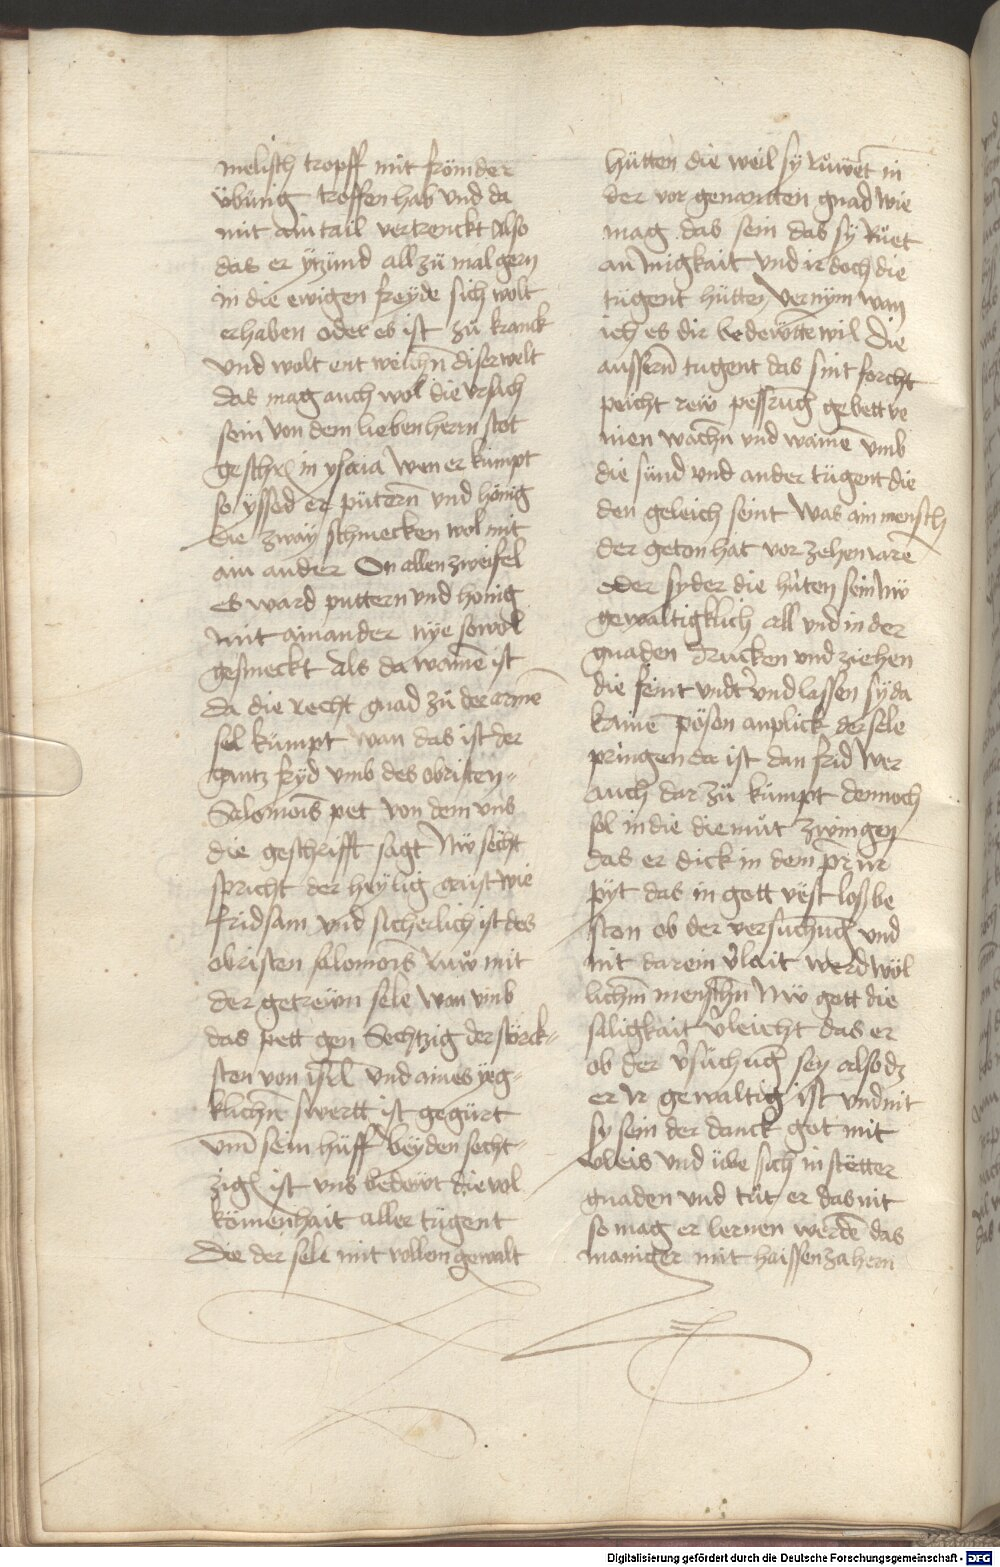 melisch tropff mit frömder
übung troffen hab vnd da
mit ain tail vertrenckt Also
das er ytzünd all zü mal gern
in die ewigen freyde sich wolt
erhaben oder es ist zü kranck
vnd wolt ent weichn̄ diser welt
das mag auch wol die vrsach
sein von dem lieben herrn stot
geschrˢ in ysaia Wen er kumpt
so yssed er pütern̄ vnd hönig
die zwäy schmecken wol mit
ain ander On allen zweifel
Es ward puttern vnd honig
mit ainander nye so wol
gesmeckt Als da wannē ist
da die recht gnad zü der armē
sel kümpt wan das ist der
gantz fryd vmb des obristen
Salomōis pet von dem vns
die geschrifft sagt Nw secht
spricht der heylig gaist wie
fridsam vnd sicherlich ist des
obristen salomōis ruw mit
der getrewn sele Wan vmb
das pett gen Sechtzig der störck-
sten von isrl̄ vnd aines yeg-
klichn̄ swertt ist gegürt
vm̄ sein hüff bey den secht-
zigˢ ist vns bedewt die vol
kömenhait aller tügent
Die der sele mit vollem gewalt
hütten die weil sy ruwēt in
der vor genanten gnad Wie
mag das sein das sy Ruet
an migkait vnd ir doch die
tügent hütten vernym wan
ich es dir bedewtte wil Die
aussern̄ tugent das sint forcht
peicht rew pessruḡ gebett ve
nien wachn̄ vnd wainē vmb
die sünd vnd ander tügent die
den geleich seint Was ain mensch
der geton hat vor zehen iarē
oder syder die hüten sein nw
gewaltigklich all vnd in der
gnaden drucken vnd ziehen
die feint vndˢ vnd lassen sy da
kainē pösen anplick der sele
pringen da ist dan frid Wer
auch dar zü kümpt dennoch
sol in die diemüt zwingen
das er dick in dem
pyt das in gott vest loß be
sten ob der versuchuḡ vnd
nit darein v̓lait werd wöl
lichm̄ menschn̄ Nw gott die
säligkait v̓leicht das er
ob der v̓süchuḡ sey also dz
er ir gewaltig ist vnd nit
sy sein der danck got mit
vleis vnd übe sich in stetter
gnaden vnd tüt er das nit
so mag er lernen werdē das
maniger mit haissen zahern
Digitalisierung gefördert durch die Deutsche Forschungsgemeinschaft - DFG